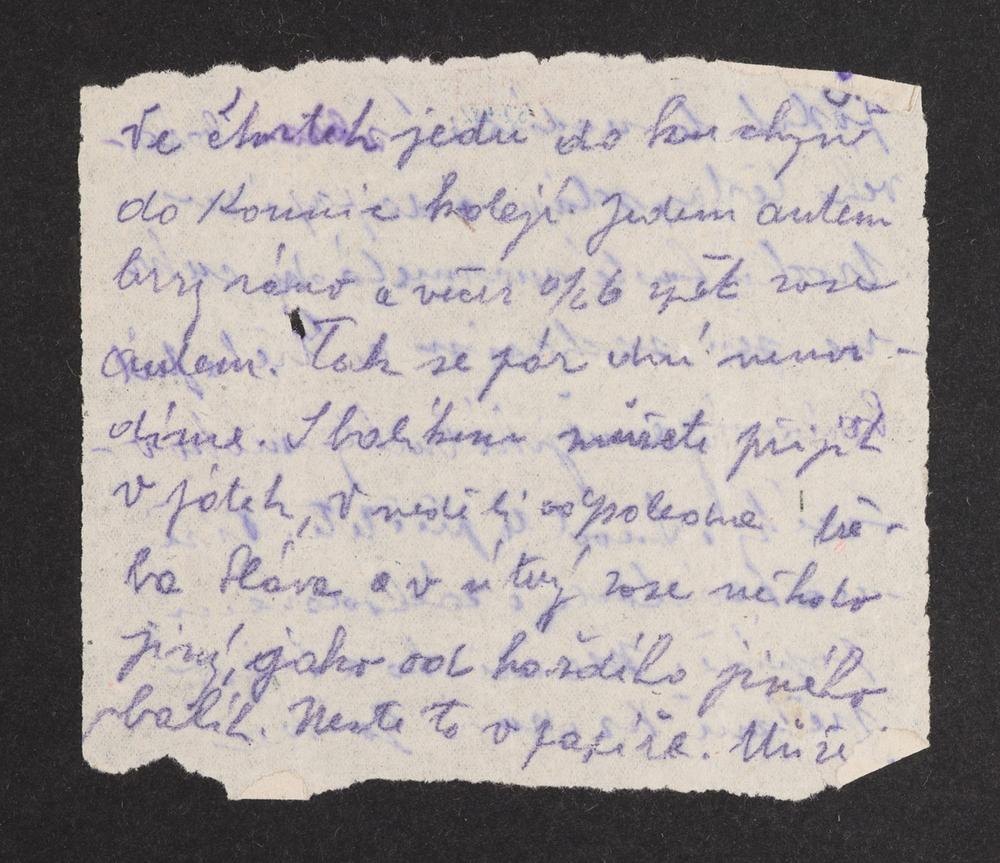 Ve čtvrtek jedu do kuchyně
do Kounic kolejí. Jedem autem
brzy ráno a večer o ½ 6 zpět zase
autem. Tak se pár dnú neuvi-
díme. S balíkem můžete přijít
v pátek, v neděli odpoledne tře-
ba Sláva a v úterý zase někdo
jiný, jako od každého jiného
balík. Neste to v papíře. Může